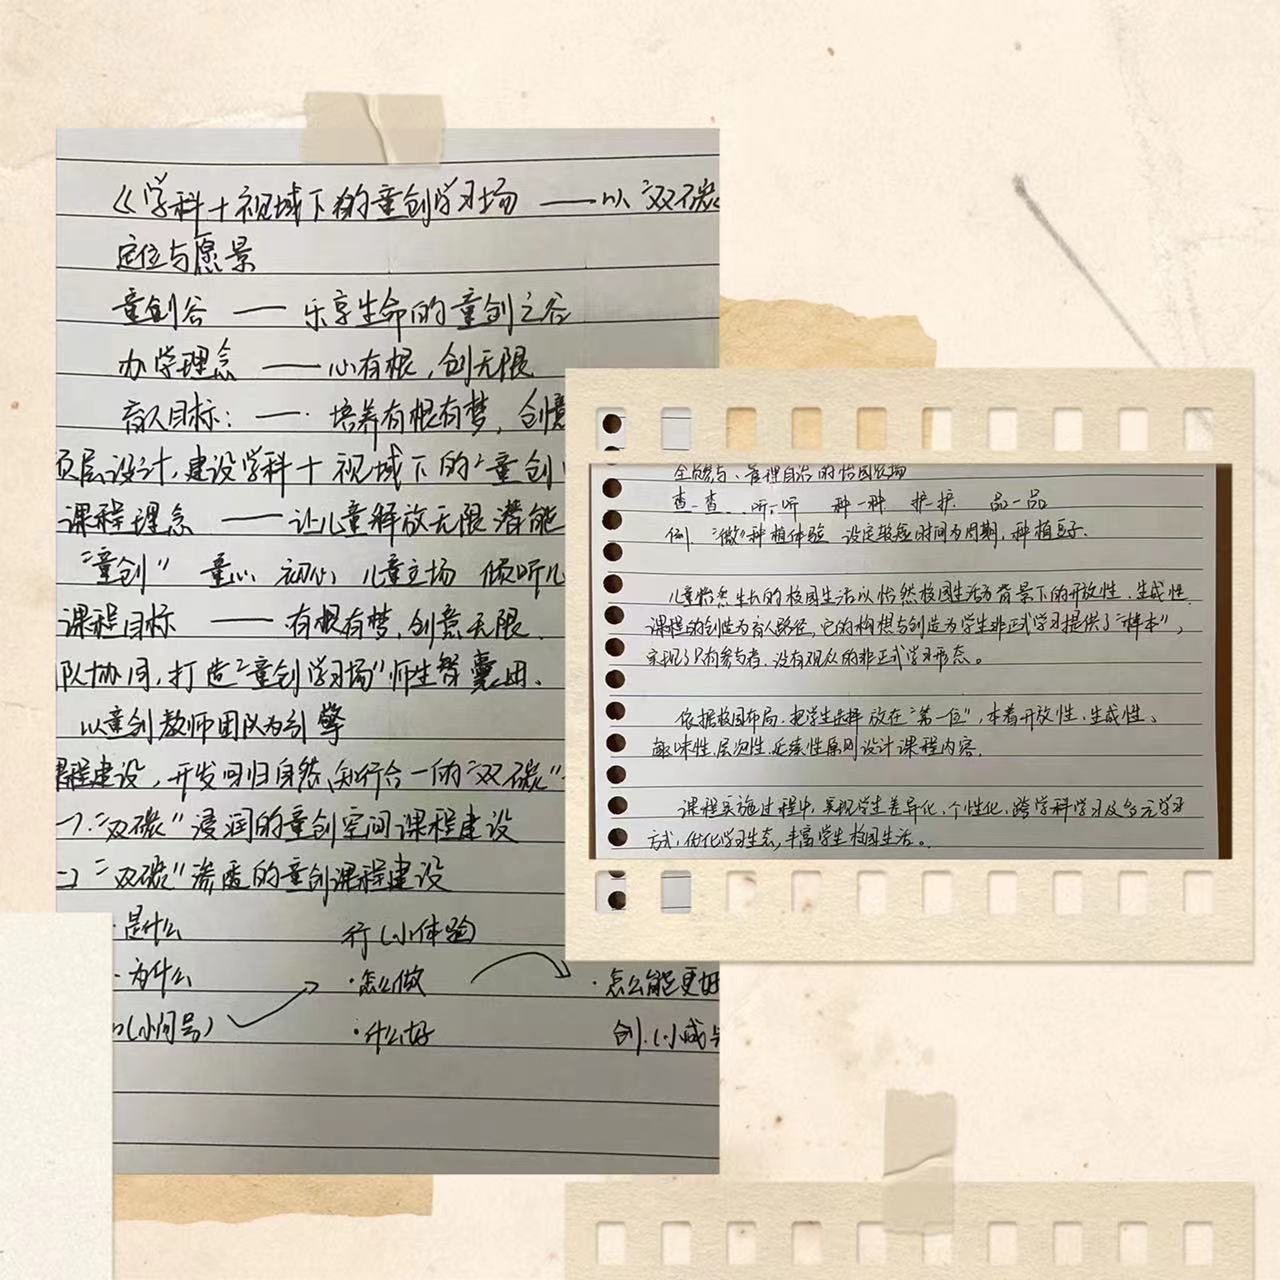 《学科+视域下的童创学习场 ——以"双碳
定位与愿景
童创谷 —— 乐享生命的童创之谷
办学理念 —— 心有根,创无限
育人目标: —— 培养有根有梦,创意
顶层设计,建设学科+视域下的"童创
课程理念 —— 让儿童解放无限潜能
"童创" 童心 初心 儿童立场 倾听儿
课程目标 —— 有根有梦,创意无限.
队协同,打造"童创学习场"师生智囊团.
以童创教师团队为引擎
课程建设,开发回归自然、知行合一的"双碳"
一)."双碳"浸润的童创空间课程建设
二)"双碳"渗透的童创课程建设
·是什么 行(小体验)
·为什么 ·怎么做 ·怎么能更好
(小问号) ·什么好 创.(小成
全员参与、管理自治的怡园农场
查一查、听一听 种一种 护一护 品一品
例. "微"种植体验 设定较短时间为周期,种植豆子.
儿童怡然生长的校园生活以怡然校园生活为背景下的开放性、生成性
课程的创造为育人路径,它的构想与创造为学生非正式学习提供了"样本",
实现了只有参与者,没有观众的非正式学习形态。
依据校园布局,把学生选择放在"第一位",本着开放性、生成性、
趣味性、层次性、延续性原则设计课程内容.
课程实施过程中,实现学生差异化、个性化、跨学科学习及多元学习
方式,优化学习生态,丰富学生校园生活。